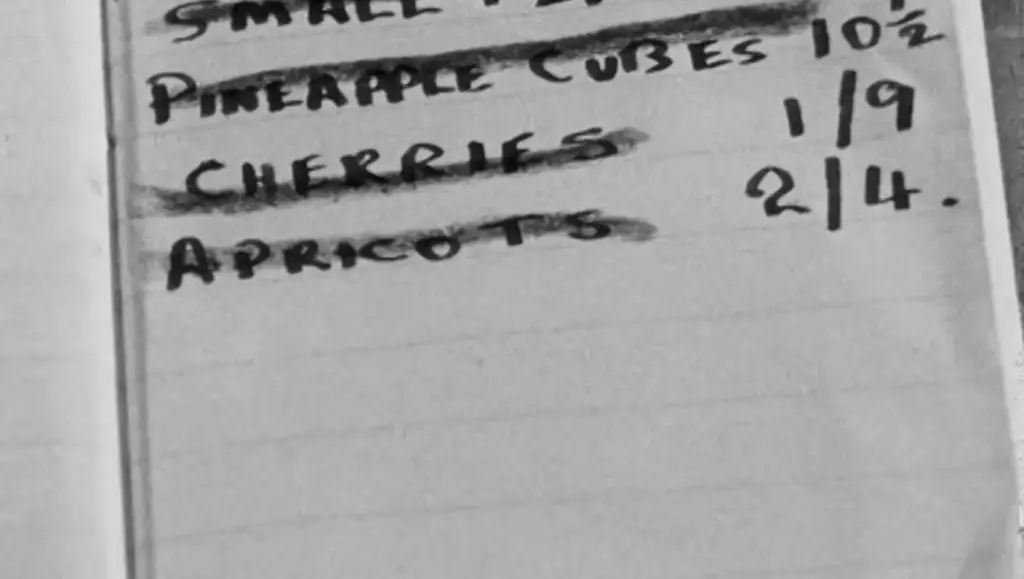 SMALL
PINEAPPLE CUBES 10½
CHERRIES 1/9
APRICOTS 2/4.